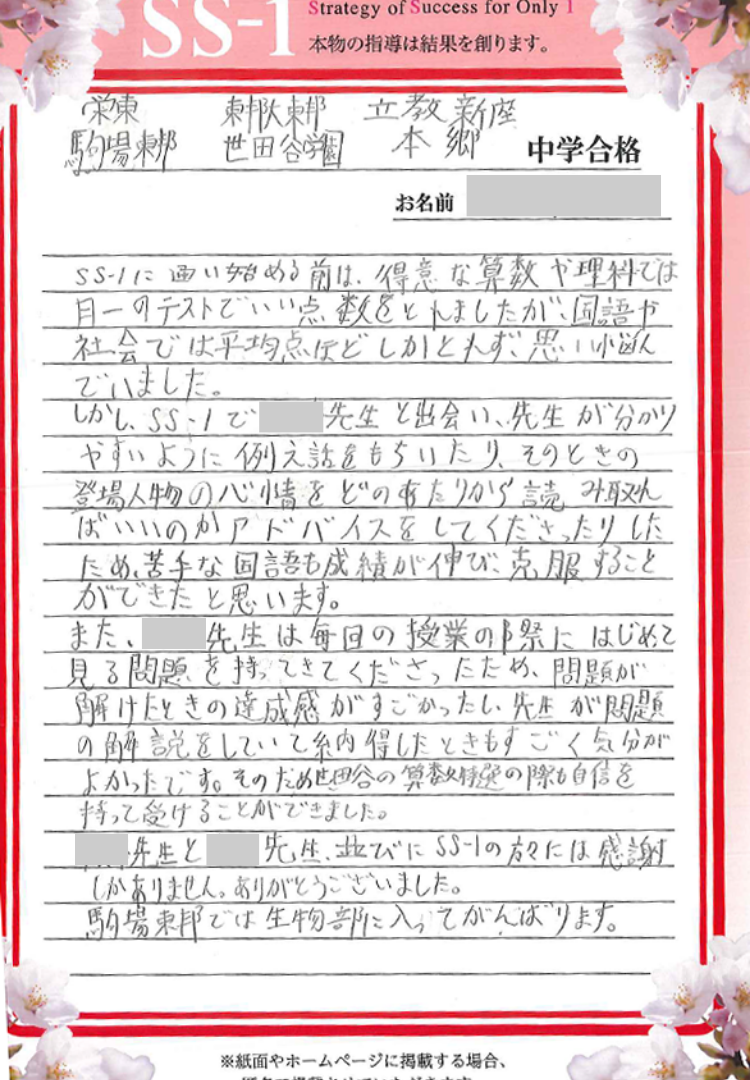 SS-1
Strategy of Success for Only 1
本物の指導は結果を創ります。
栄東 東邦大東邦 立教新座
駒場東邦 世田谷学園 本郷 中学合格
お名前
SS-1に通い始める前は、得意な算数や理科では
月一のテストでいい点数をとれましたが、国語や
社会では平均点ほどしかとれず、思い悩ん
でいました。
しかし、SS-1で先生と出会い、先生が分かり
やすいように例え話をもちいたり、そのときの
登場人物の心情をどのあたりから読み取れ
ばいいのかアドバイスをしてくださったりした
ため、苦手な国語も成績が伸び、克服すること
ができたと思います。
また、先生は毎回の授業の際にはじめて
見る問題を持ってきてくださったため、問題が
解けたときの達成感がすごかったし、先生が問題
の解説をしていて納得したときもすごく気分が
よかったです。そのため世田谷の算数特選の際も自信を
持って受けることができました。
先生と先生、並びにSS-1の方々には感謝
しかありません。ありがとうございました。
駒場東邦では生物部に入ってがんばります。
※紙面やホームページに掲載する場合、